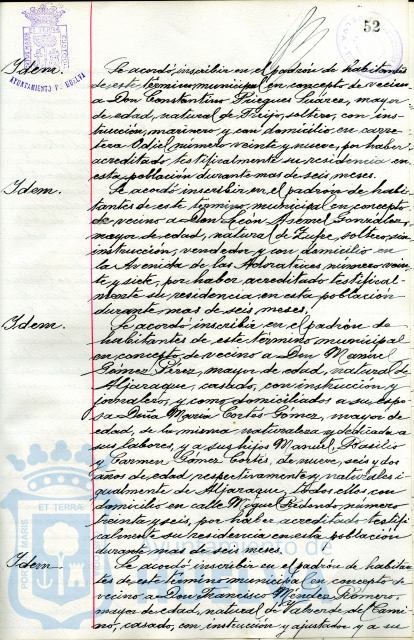 52
AYUNTAMIENTO DE HUELVA
Idem. Se acordó inscribir en el padrón de habitantes
de este término municipal en concepto de vecino
a Don Constantino Suárez, mayor
de edad, natural de soltero, con ins-
trucción, marinero y con domicilio en carre-
tera Odiel número veinte y nueve, por haber
acreditado testifical su residencia en
esta población durante mas de seis meses.
Idem. Se acordó inscribir en el padrón de habi-
tantes de este término municipal en concepto
de vecino a Don León González,
mayor de edad, natural de soltero, sin
instrucción, vendedor y con domicilio en
la Avenida de las Adoratrices número vein-
te y siete, por haber acreditado testifical-
mente su residencia en esta población
durante mas de seis meses.
Idem. Se acordó inscribir en el padrón de
habitantes de este término municipal
en concepto de vecino a Don Manuel
Gómez Pérez, mayor de edad, natural de
Aljaraque, casado, con instrucción y
jornalero, y como domiciliados a su espo-
sa Doña María Cortés Gómez, mayor de
edad, de la misma naturaleza y dedicada a
sus labores, y a sus hijos Manuel, Basilio
y Carmen Gómez Cortés, de nueve, seis y dos
años de edad respectivamente y naturales i-
gualmente de Aljaraque, todos ellos con
domicilio en calle Miguel Redondo número
treinta y seis, por haber acreditado testifi-
calmente su residencia en esta población
durante mas de seis meses.
Idem. Se acordó inscribir en el padrón de habitan-
tes de este término municipal en concepto de
vecino a Don Francisco Méndez Romero,
mayor de edad, natural de Valverde del Cami-
no, casado, con instrucción y ajustador y a su
PORTUS MARIS ET TERRAE
Ayuntamiento de